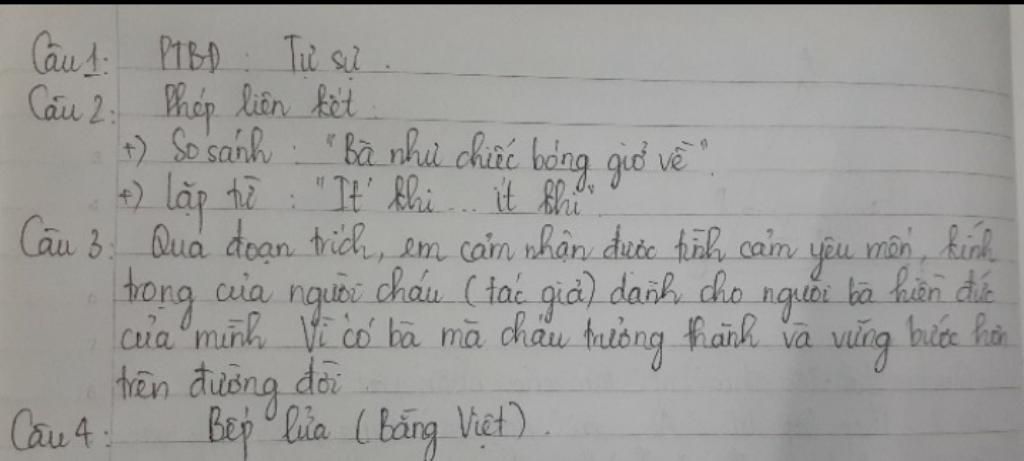 Câu 1: PTBĐ: Tự sự.
Câu 2: Phép liên kết.
+) So sánh: "Bà như chiếc bóng giở về".
+) lặp từ: "Ít khi... ít khi"
Câu 3: Qua đoạn trích, em cảm nhận được tình cảm yêu mến, kính
trọng của người cháu (tác giả) dành cho người bà hiền đức
của mình Vì có bà mà cháu trưởng thành và vững bước hơn
trên đường đời
Câu 4: Bếp lửa (Bằng Việt).